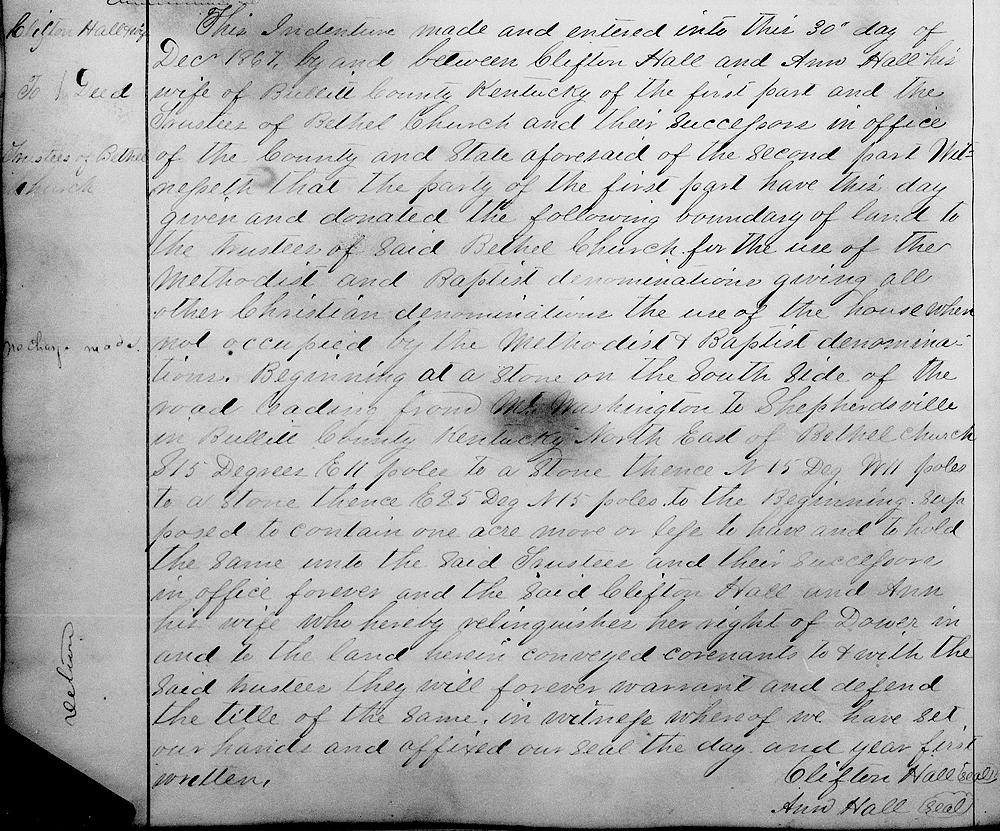 Clifton Hall & wife
To } Deed
Trustees of Bethel
Church
This Indenture made and entered into this 30" day of
Decr 1867, by and between Clifton Hall and Ann Hall his
wife of Bullitt County Kentucky of the first part and the
Trustees of Bethel Church and their successors in office
of the County and State aforesaid of the second part Wit-
nesseth that the party of the first part have this day
given and donated the following boundary of land to
the trustees of said Bethel Church for the use of the
Methodist and Baptist denominations giving all
other Christian denominations the use of the house when
not occupied by the Methodist & Baptist denomina-
tions. Beginning at a stone on the South Side of the
road leading from Mt. Washington to Shepherdsville
in Bullitt County Kentucky North East of Bethel church
S 15 Degrees E 11 poles to a stone thence N 15 Deg W 11 poles
to a stone thence E 25 Deg N 15 poles to the Beginning. Sup
posed to contain one acre more or less to have and to hold
the same unto the said Trustees and their successors
in office forever and the said Clifton Hall and Ann
his wife who hereby relinquishes her right of Dower in
and to the land herein conveyed covenants to & with the
said trustees they will forever warrant and defend
the title of the same. in witness whereof we have set
our hands and affixed our seal the day and year first
written.
Clifton Hall (seal)
Ann Hall (seal)
no charge made.